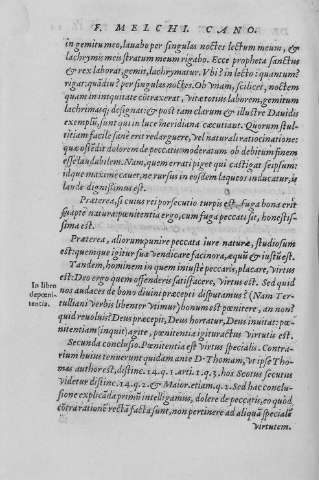 F. MELCHI. CANO.
in gemitu meo, lauabo per singulas noctes lectum meum, &
lachrymis meis stratum meum rigabo. Ecce propheta sanctus
& rex laborat, gemit, lachrymatur. Vbi? in lecto: quantum?
rigat: quãdiu? per singulas noctes. Ob vnam, scilicet, noctem
quam in iniquitate cõtraxerat, vitæ totius laborem, gemitum
lachrimasq; designat: & post tam clarum & illustre Dauidis
exemplũ, sunt qui in luce meridiana cæcutiant. Quorum stul-
titiam facile sanè erit redarguere, vel naturali ratiocinatione:
quæ ostẽdit dolorem de peccatis moderatum ob debitum finem
esse laudabilem. Nam, quem errati piget qui castigat seipsum:
idque maximè cauet, ne rursus in eosdem laqueos inducatur, is
laude dignissimus est.
Præterea, si cuius rei porsecutio turpis est, fuga bona erit
suapte natura: pœnitentia ergo, cum fuga peccati sit, honestis-
sima est.
Præterea, aliorum punire peccata iure naturæ, studiosum
est: quemque igitur sua vendicare facinora, æquũ & iustũ est.
Tandem, hominem in quem iniustè peccaris, placare, virtus
est: Deo ergo quem offenderis satisfacere, Virtus est. Sed quid
nos audaces de bono diuini præcepti disputamus? (Nam Ter-
In libro
de pœni-
tentia.
tulliani Verbis libenter Vtimur) bonum est pœnitere, an non?
quid reuoluis? Deus præcepit, Deus hortatur, Deus inuitat: pœ-
nitentiam (inquit) agite, pœnitentia igitur actus Virtutis est.
Secunda conclusio. Pœnitentia est virtus specialis. Contra-
rium huius tenuerunt quidam ante D. Thomam, Vt ipse Tho-
mas author est, distinc. 14. q. 1. arti. 1. q. 3. hos Scotus secutus
videtur distinc. 14. q. 2. & Maior. etiam. q. 1. Sed hæc conclu-
sione explicãda primũ intelligamus, dolere de peccatis, eo quòd
cõtra rationẽ rectã facta sunt, non pertinere ad aliquã specialẽ
virtutem.